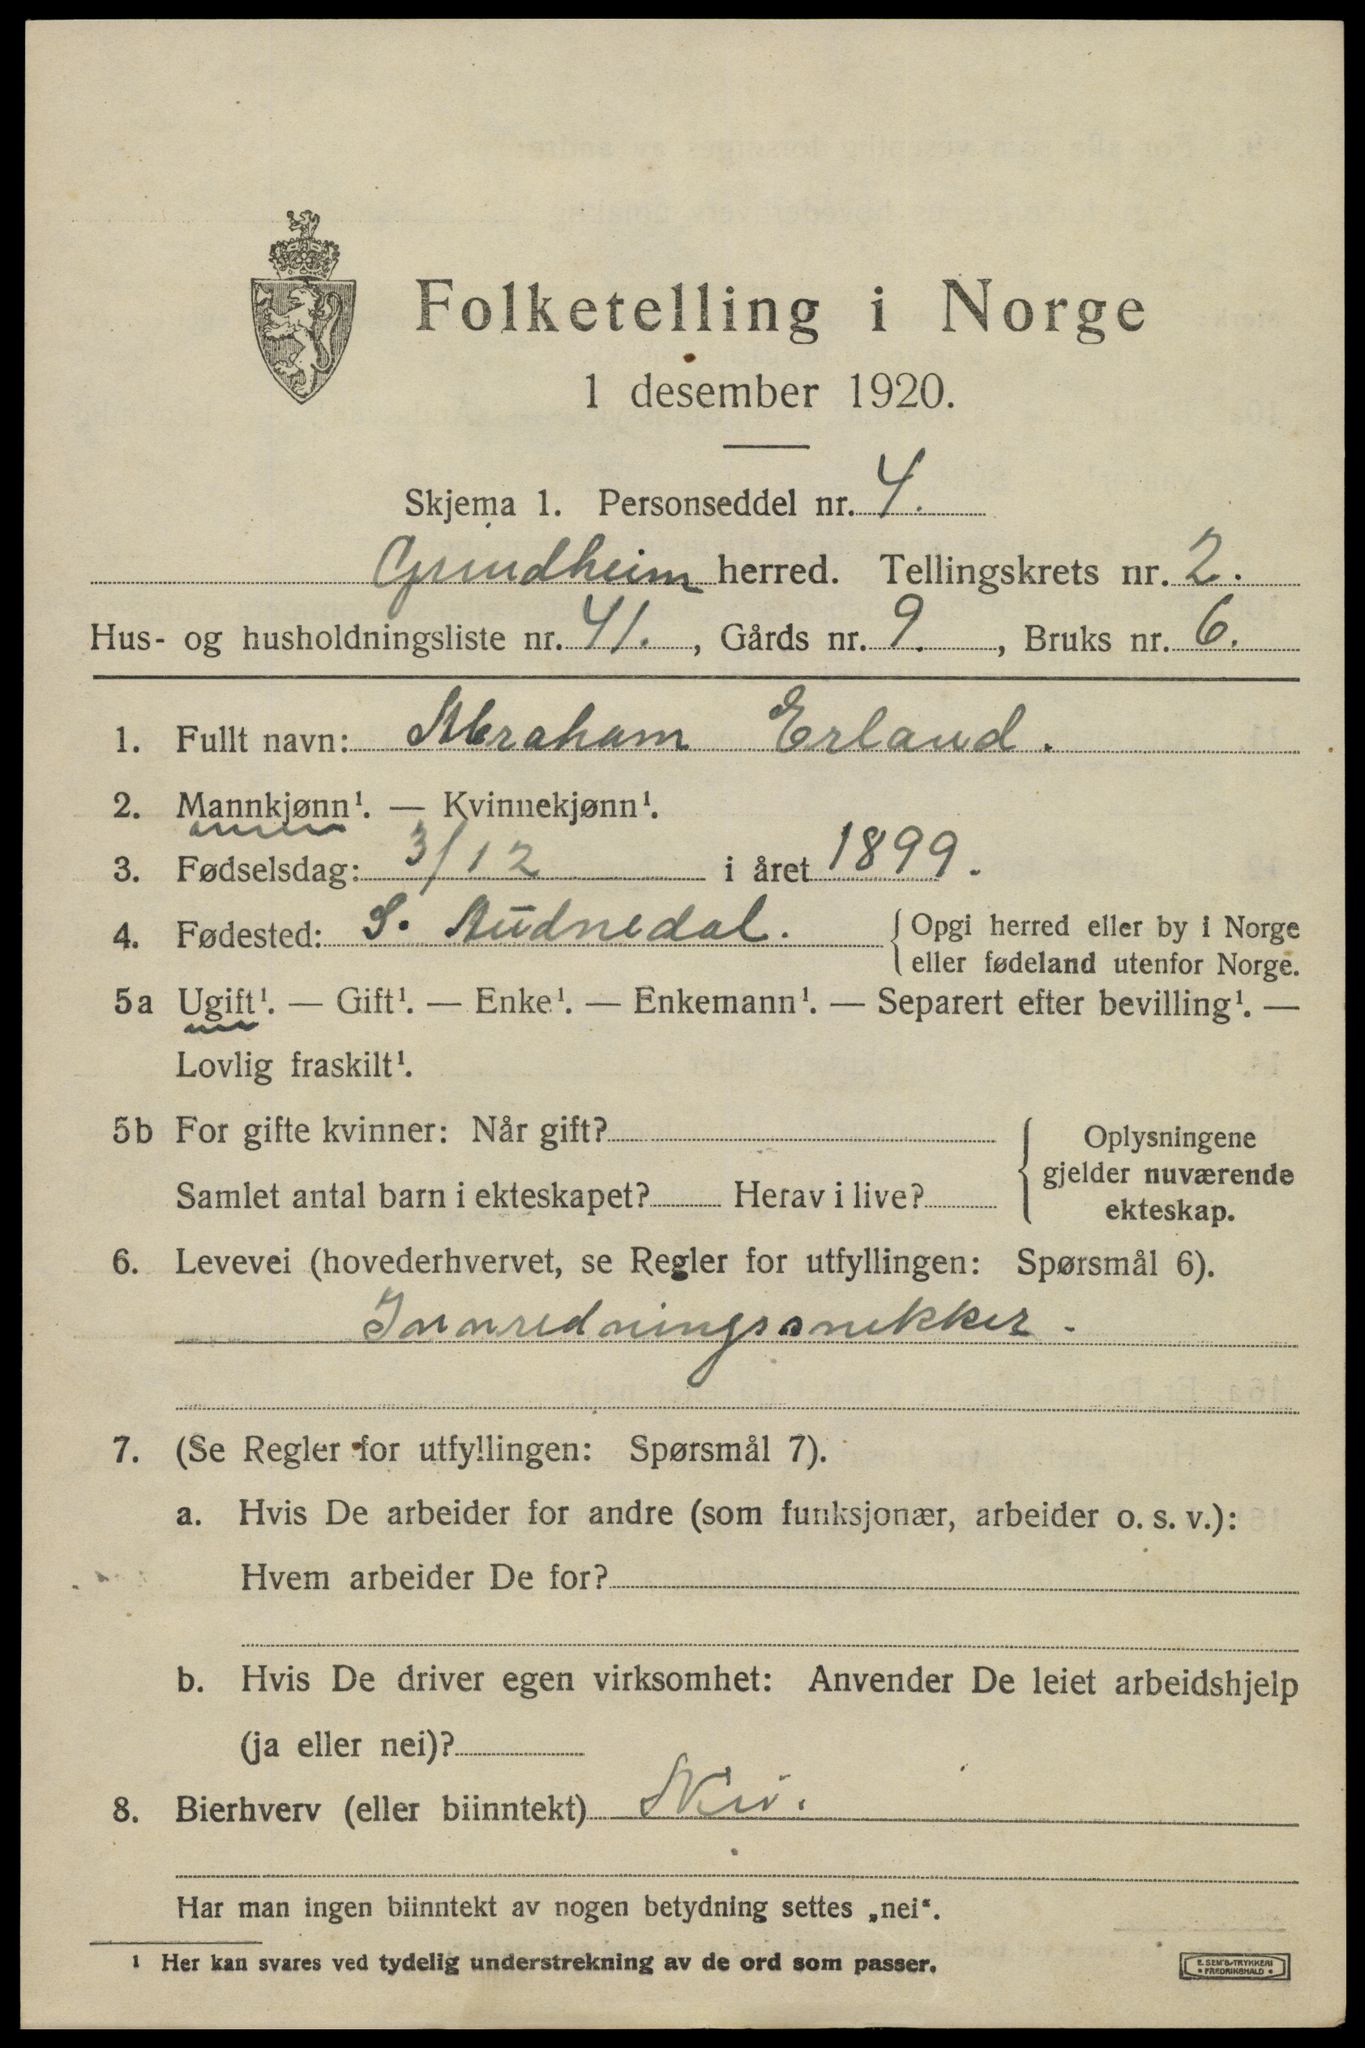 Folketelling i Norge
1 desember 1920.
Skjema 1. Personseddel nr. 4.
Grindheim herred. Tellingskrets nr. 2.
Hus- og husholdningsliste nr. 41., Gårds nr. 9., Bruks nr. 6.
1. Fullt navn: Abraham Erland.
2. Mannkjønn¹. — Kvinnekjønn¹.
3. Fødselsdag: 3/12 i året 1899.
4. Fødested: S. Audnedal. { Opgi herred eller by i Norge
eller fødeland utenfor Norge.
5a Ugift¹. — Gift¹. — Enke¹. — Enkemann¹. — Separert efter bevilling¹. —
Lovlig fraskilt¹.
5b For gifte kvinner: Når gift?
Samlet antal barn i ekteskapet? Herav i live?
{ Oplysningene
gjelder nuværende
ekteskap.
6. Levevei (hovederhvervet, se Regler for utfyllingen: Spørsmål 6).
Innredningssnekker.
7. (Se Regler for utfyllingen: Spørsmål 7).
a. Hvis De arbeider for andre (som funksjonær, arbeider o. s. v.):
Hvem arbeider De for?
b. Hvis De driver egen virksomhet: Anvender De leiet arbeidshjelp
(ja eller nei)?
8. Bierhverv (eller biinntekt) Nei.
Har man ingen biinntekt av nogen betydning settes „nei“.
¹ Her kan svares ved tydelig understrekning av de ord som passer.
E. SEM'S TRYKKERI
• FREDRIKSHALD •